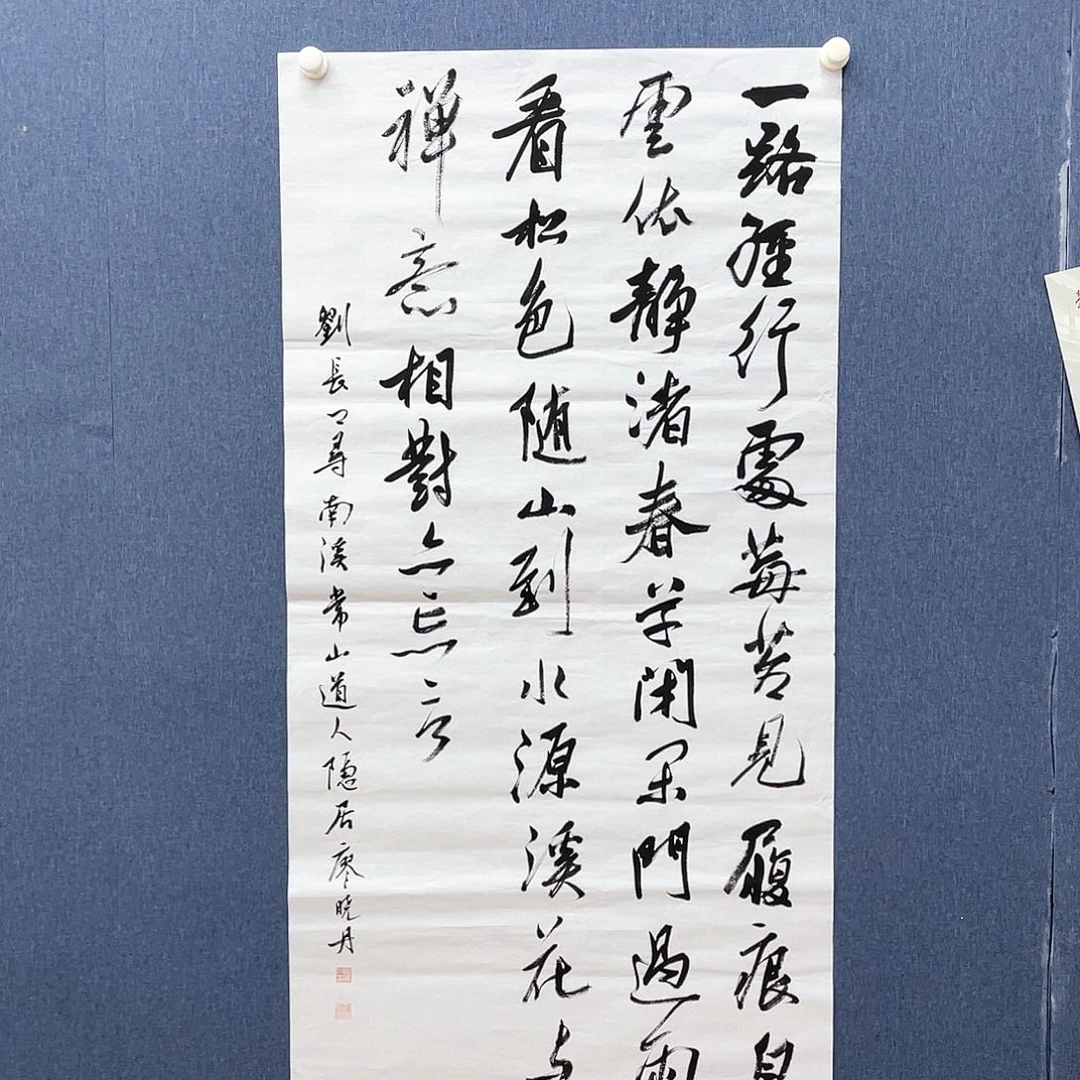 一路經行處莓苔見履痕白
雲依靜渚春草閉閑門過雨
看松色随山到水源溪花与
禪意相對亦忘言
劉長卿尋南溪常山道人隱居廖晓丹